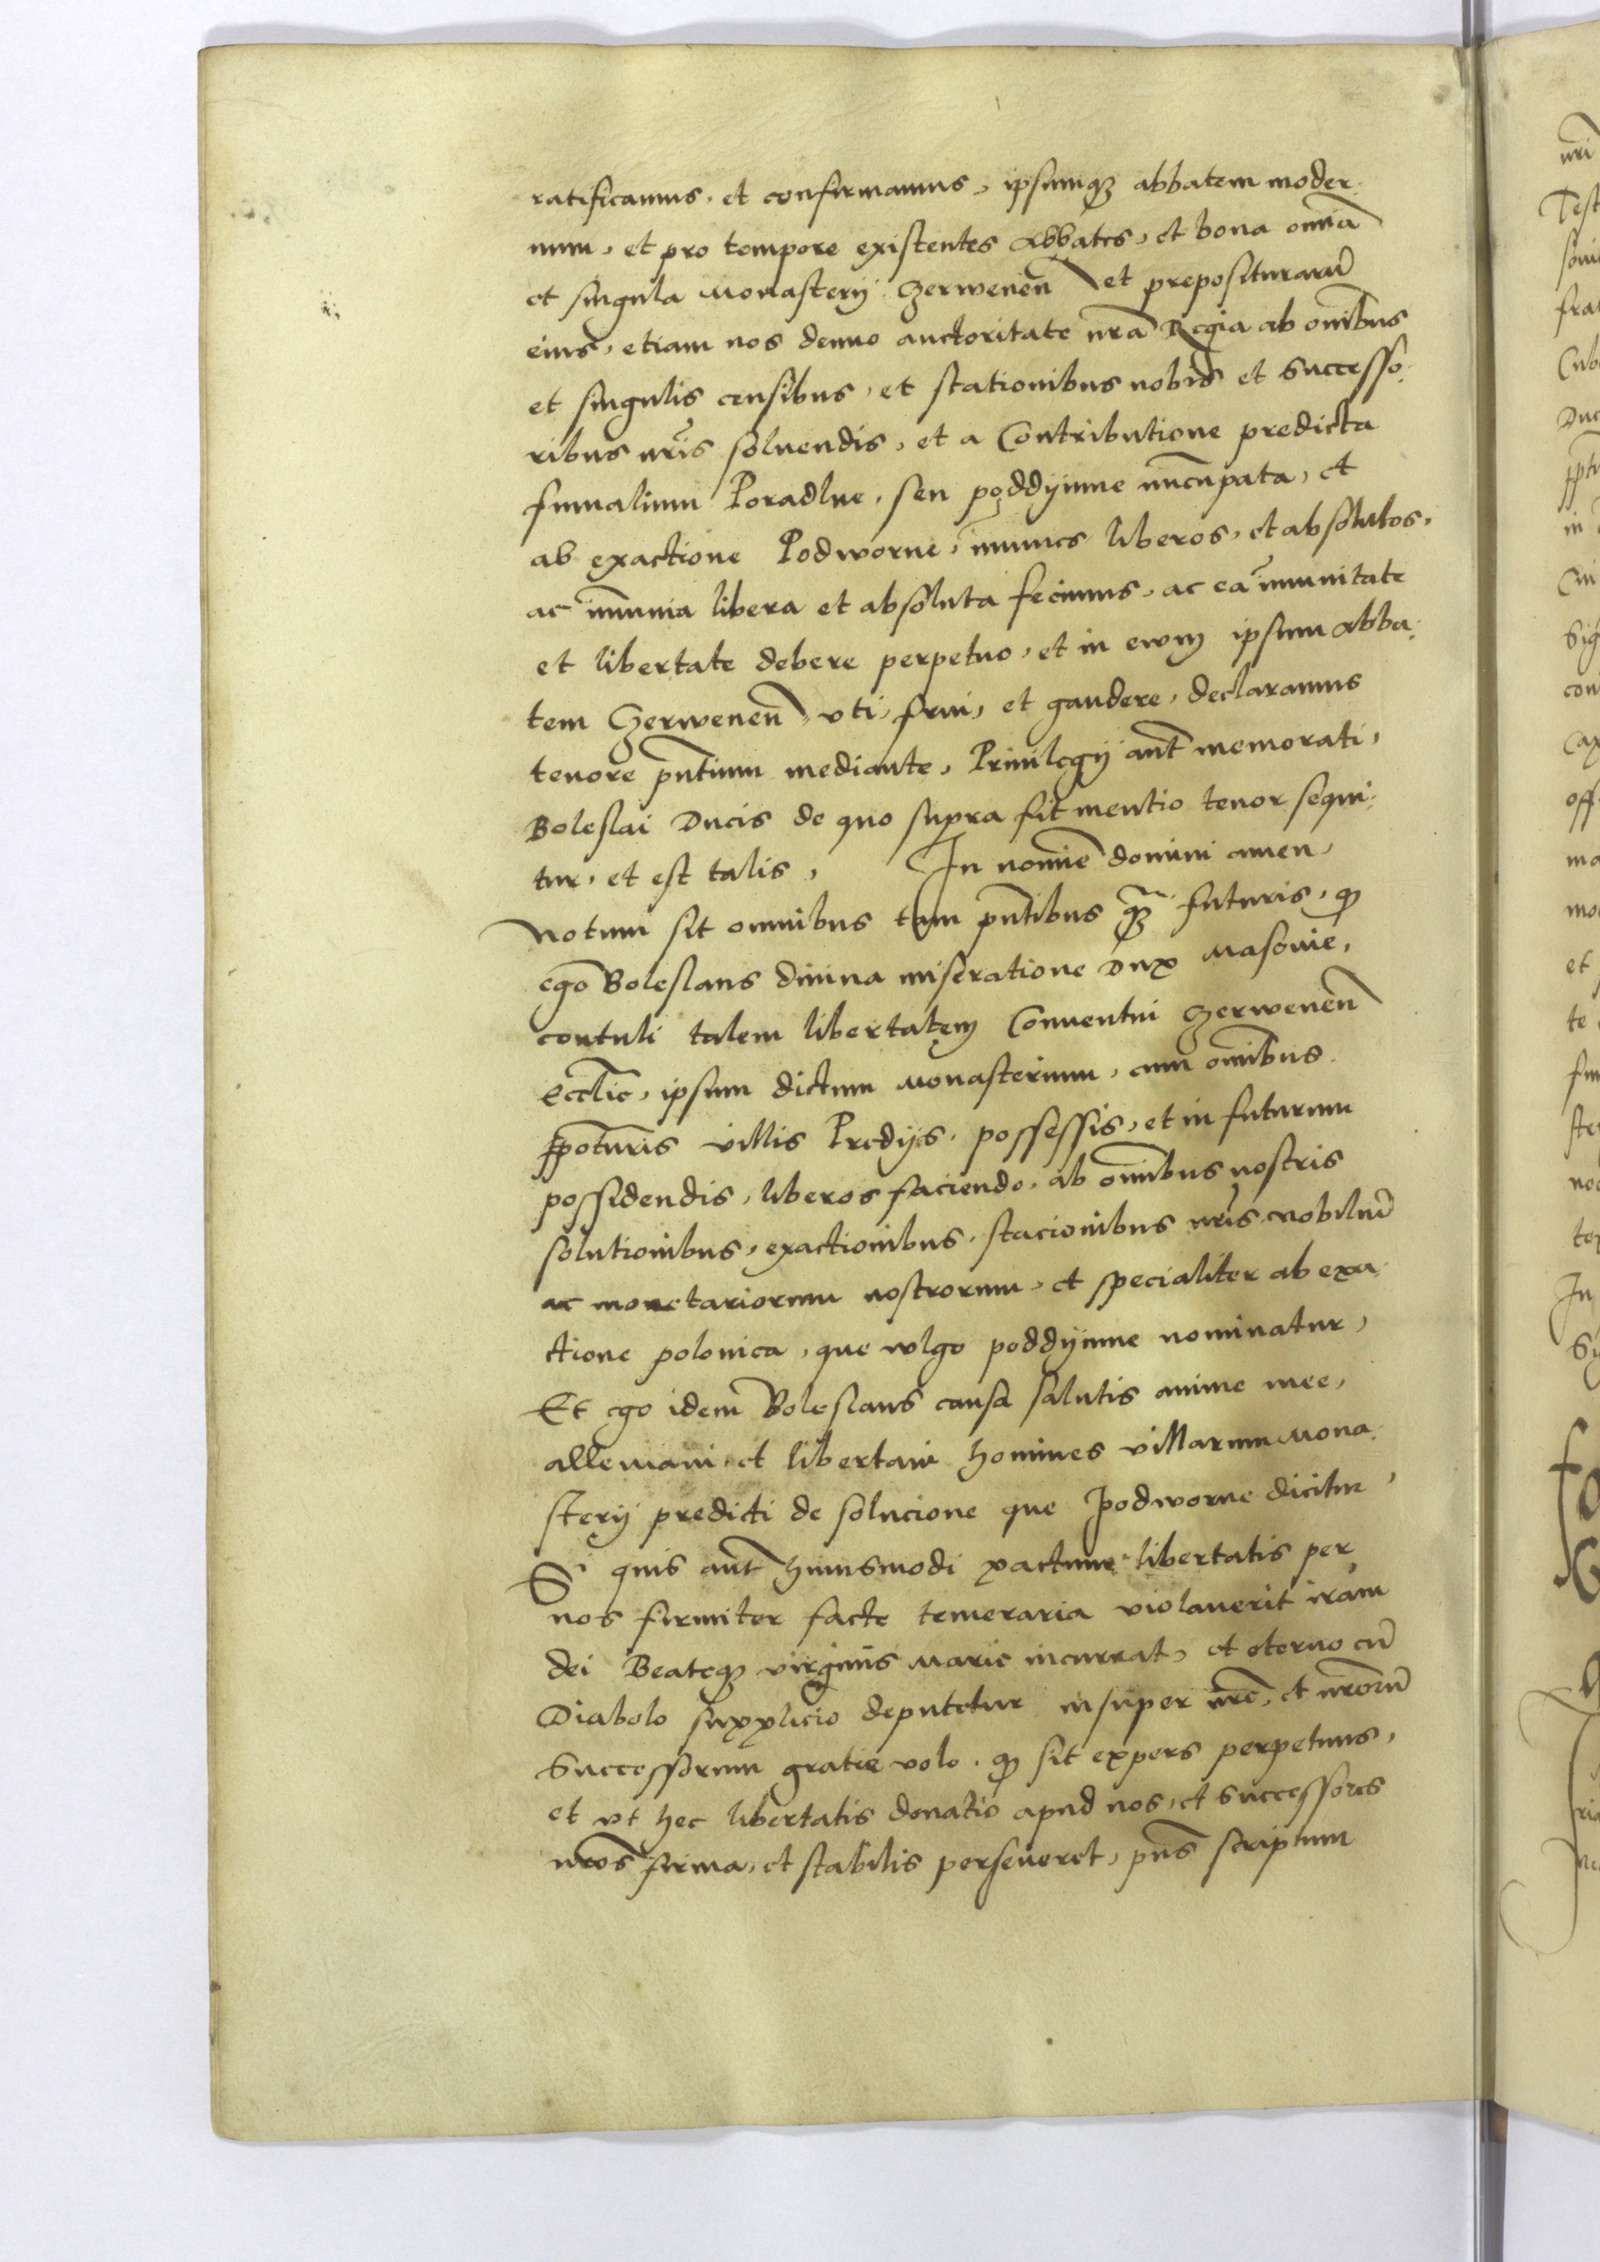 ratificamus, et confirmamus, ipsumqꝫ abbatem moder-
num, et pro tempore existentes Abbates, et bona om̄ia
et singula Monasterij Czerwenen̄ et prepositurarū
eius, etiam nos denuo auctoritate nr̄a Regia ab om̄ibus
et singulis censibus, et stationibus nobis et Successo-
ribus nr̄is soluendis, et a Contributione predicta
fumalium Poradlne, seu poddijmne nuncupata, et
ab exactione Podworne, im̄unes liberos, et absolutos,
ac im̄unia libera et absoluta fecimus, ac ea im̄unitate
et libertate debere perpetuo, et in ewm ipsum Abba-
tem Czerwenen̄ vti, frui, et gaudere, declaramus
tenore pn̄tium mediante, Priuilegij aut̄ memorati,
Boleslai Ducis de quo supra fit mentio tenor sequi-
tur, et est talis, In nomie̅ domini amen,
Notum sit omnibus tam pn̄tibus qꝫ̄ futuris, ꝙ
ego Boleslaus diuina miseratione Dux Masouie,
contuli talem libertatem Conuentui Czerwenen̄
Eccl̄ie, ipsum dictum Monasterium, cum om̄ibus
villis Predijs, possessis, et in futurum
possidendis, liberos faciendo, ab om̄ibus nostris
solutionibus, exactionibus, stacionibus nr̄is nobiliū
ac monetariorum nostrorum, et specialiter ab exa-
ctione polonica, que vulgo poddijmne nominatur,
Et ego idem Boleslaus causa salutis anime mee,
alleuiaui, et libertaui homines villarum Mona-
sterij predicti de solucione que Podworne dicitur,
Si quis aut̄ huiusmodi pactum libertatis per
nos firmiter facte temeraria violauerit iram
dei Beateqꝫ virginis Marie incurrat, et eterno cū
Diabolo supplicio deputetur insuper nr̄e, et nr̄orū
Successorum gratie volo, ꝙ sit expers perpetuus,
et vt hec libertatis donatio apud nos, et successores
nr̄os firma, et stabilis perseueret, pn̄s scriptum